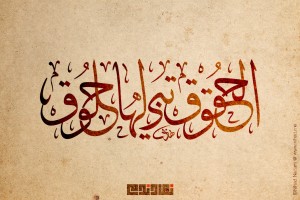 الحقوق تبي لها حلوق